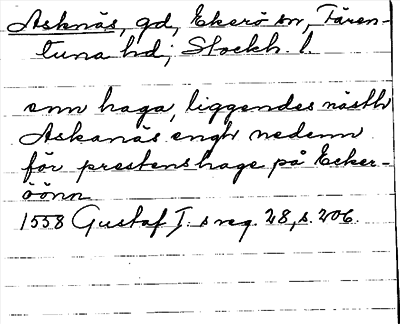 Asknäs, gd, Ekerö sn, Fären-
tuna hd; Stockh. l.
enn haga, liggendes nästh
Askanäs engh nedenn
för prestenshage på Ecker-
öönn
1558 Gustaf I. s reg. 28, s. 206.